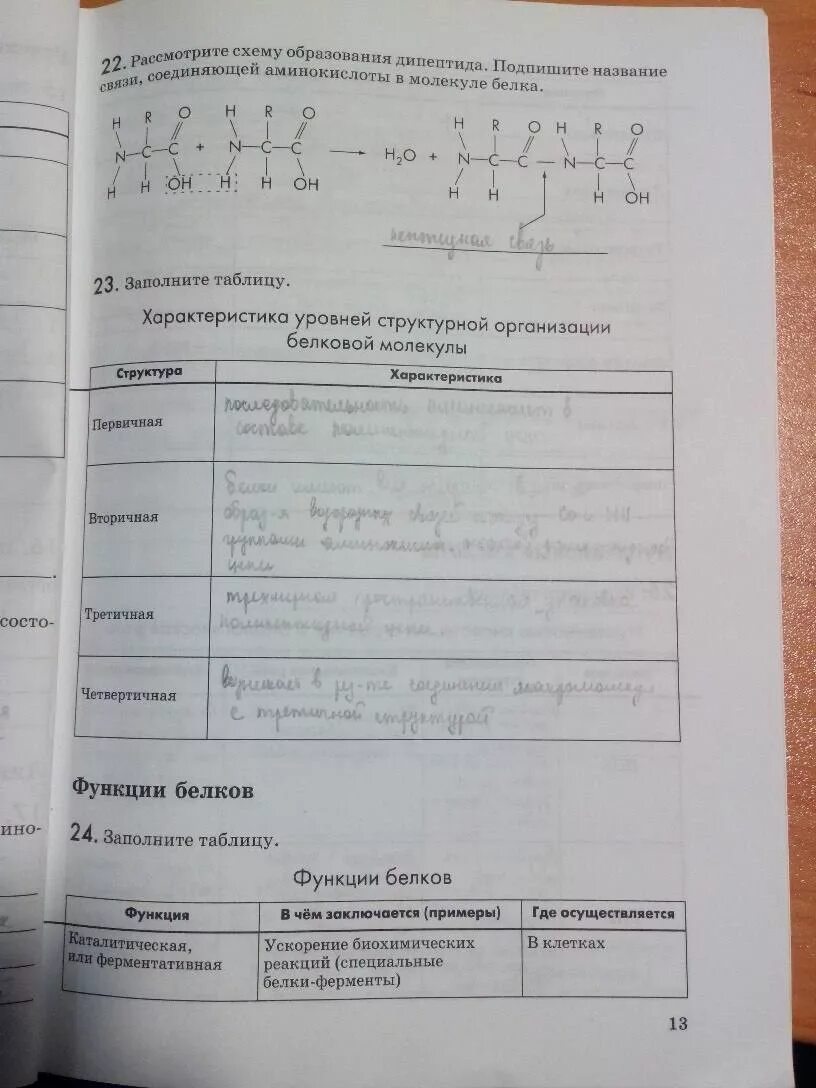 22. Рассмотрите схему образования дипептида. Подпишите название
связи, соединяющей аминокислоты в молекуле белка.
H R O H R O H R O H R O
N—C—C + N—C—C → H₂O + N—C—C—N—C—C
H H OH H H OH H H H OH
пептидная связь
23. Заполните таблицу.
Характеристика уровней структурной организации
белковой молекулы
Структура Характеристика
Первичная
последовательность аминокислот в
составе полипептидной цепи
Вторичная
белки имеют вид
образ-я водородных связей между CO и NH
группами
цепи
Третичная
трехмерная пространственная
полипептидной цепи
Четвертичная
возникает в рез-те соединения макромолекул
с третичной структурой
Функции белков
24. Заполните таблицу.
Функции белков
Функция В чём заключается (примеры) Где осуществляется
Каталитическая, Ускорение биохимических В клетках
или ферментативная реакций (специальные
белки-ферменты)
13
состо-
ино-